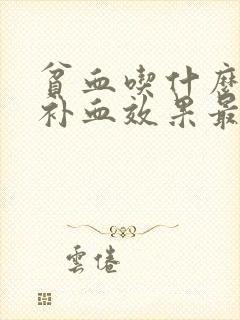 贫血喫什麽
补血效果最
雲倦